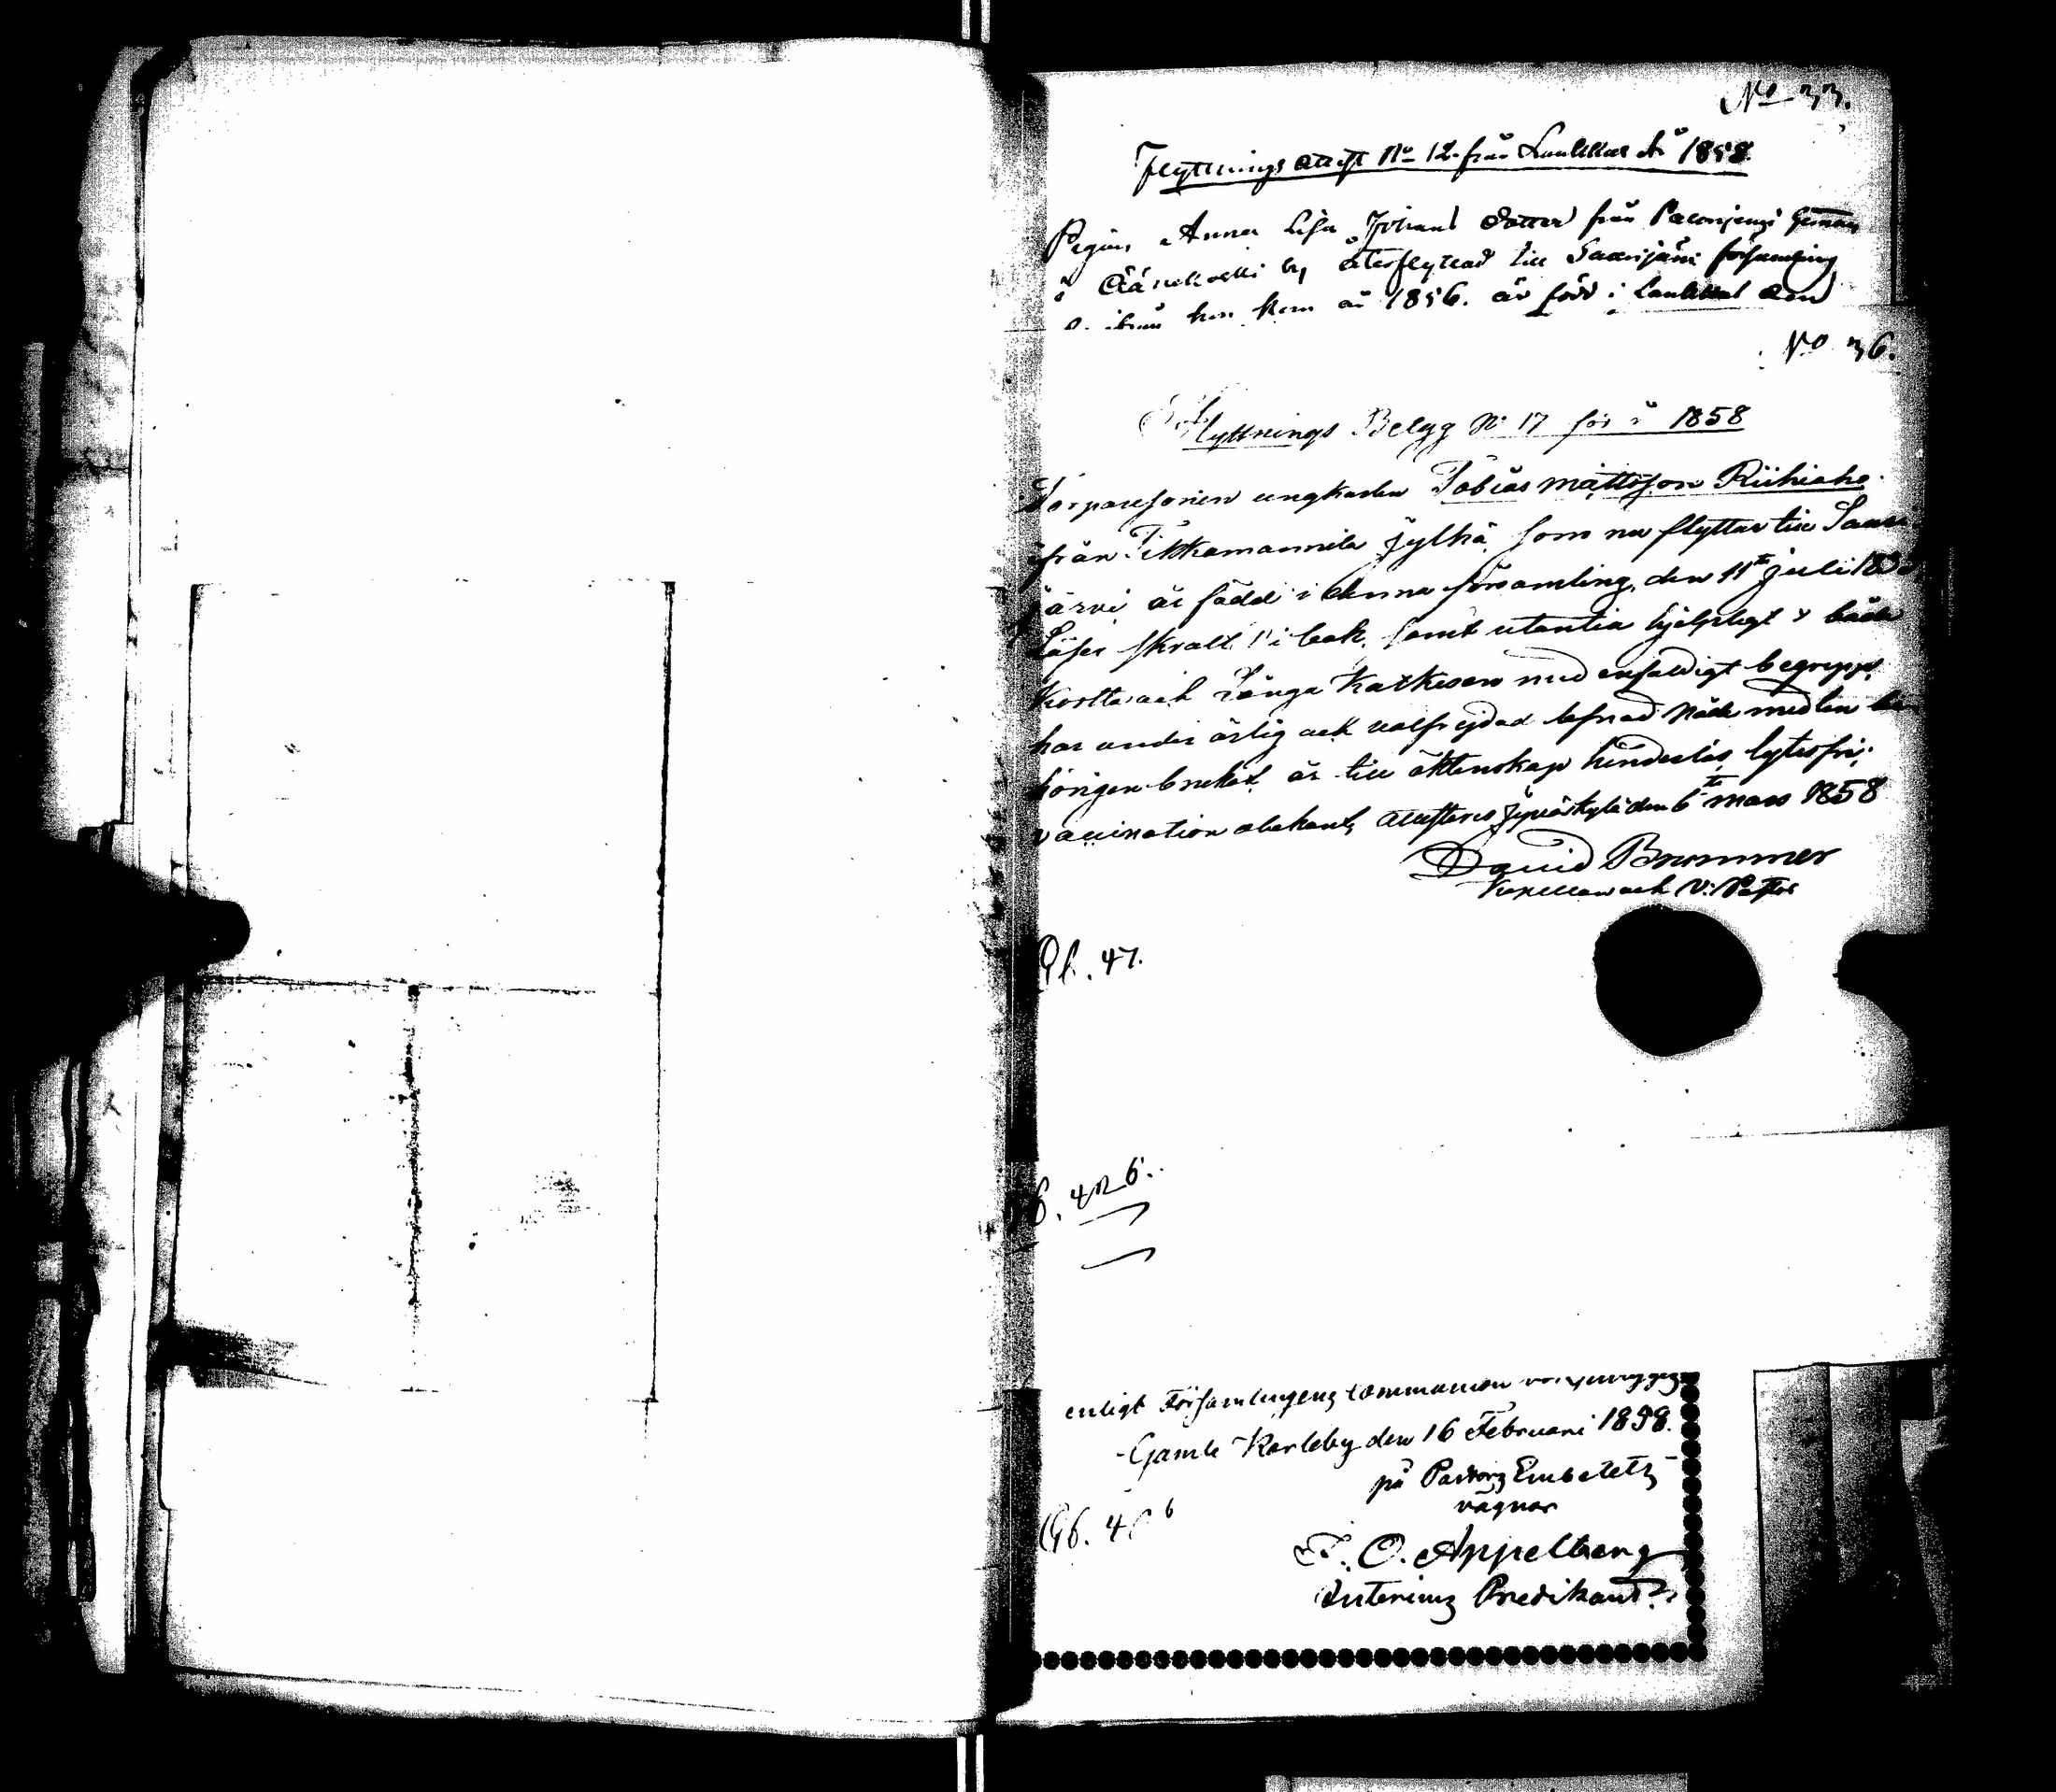 No 33.
Flyttnings attest No 12 från Laukkas År 1858.
Pigan Anna Lisa Johans dotter från
i Äänekoski by återflyttad till Saarijärvi församling
kom år 1856. är född i Laukkas den
No 36.
Flyttnings Belägg No 17 för år 1858
Torparesonen ungkarlen Tobias Mattsson Riihiaho
från Tikkamannila Jylhä, som nu flyttar till Saari
järvi är född i denna församling, den 11te Juli
Läser skralt i bok, samt utantill hjelpligt båda
korta och långa Katkesen med enfaldigt begrepp,
har under ärlig och välfrejdad lefnad Nådemedlen
börigen brukat, är till äktenskap hinderlös, lytesfri;
vaccination obekant, attesteras Jyväskylä den 6te mars 1858
David Brommer
Kapellan och V. Pastor
47.
6.
enligt Församlingens Communion
Gamle Karleby den 16 Februari 1858.
på Pastors Embetets
vägnar
F. O. Appelberg
Interims Predikant.